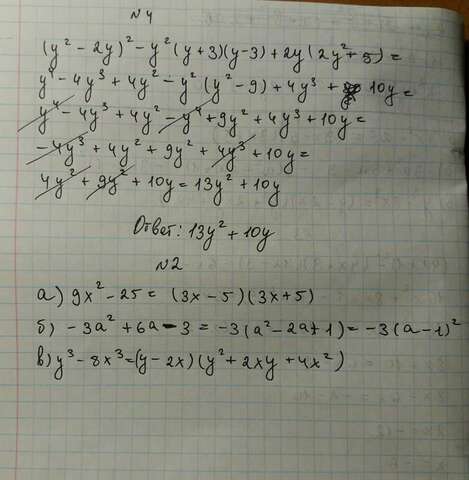 №4
(y² - 2y)² - y²(y+3)(y-3) + 2y(2y²+5) =
y⁴ - 4y³ + 4y² - y²(y² - 9) + 4y³ + 10y =
y⁴ - 4y³ + 4y² - y⁴ + 9y² + 4y³ + 10y =
-4y³ + 4y² + 9y² + 4y³ + 10y =
4y² + 9y² + 10y = 13y² + 10y
Ответ: 13y² + 10y
№2
а) 9x² - 25 = (3x - 5)(3x + 5)
б) -3a² + 6a - 3 = -3(a² - 2a + 1) = -3(a - 1)²
в) y³ - 8x³ = (y - 2x)(y² + 2xy + 4x²)